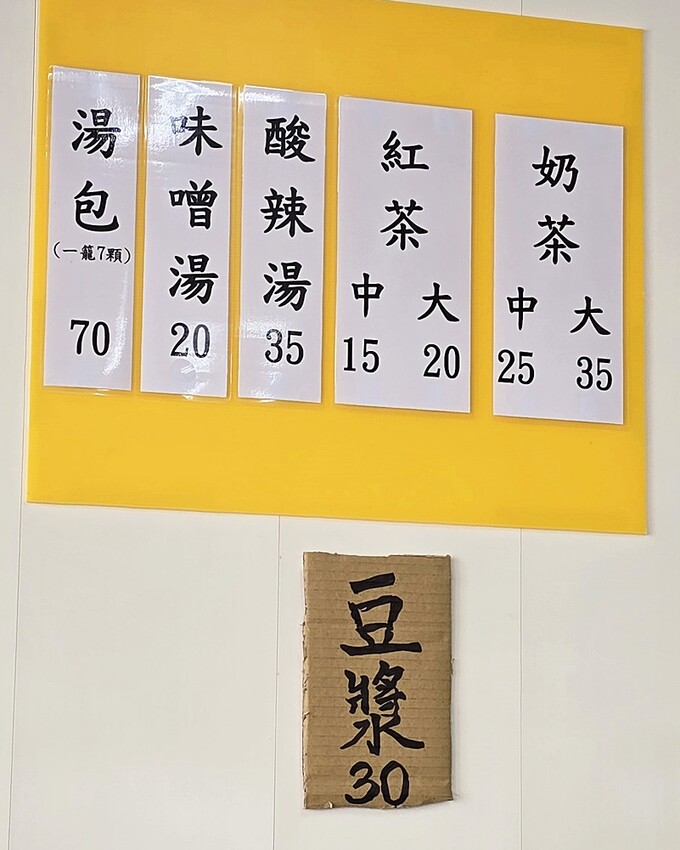 湯包
(一籠7顆)
70
味噌湯
20
酸辣湯
35
紅茶
中 大
15 20
奶茶
中 大
25 35
豆漿
30